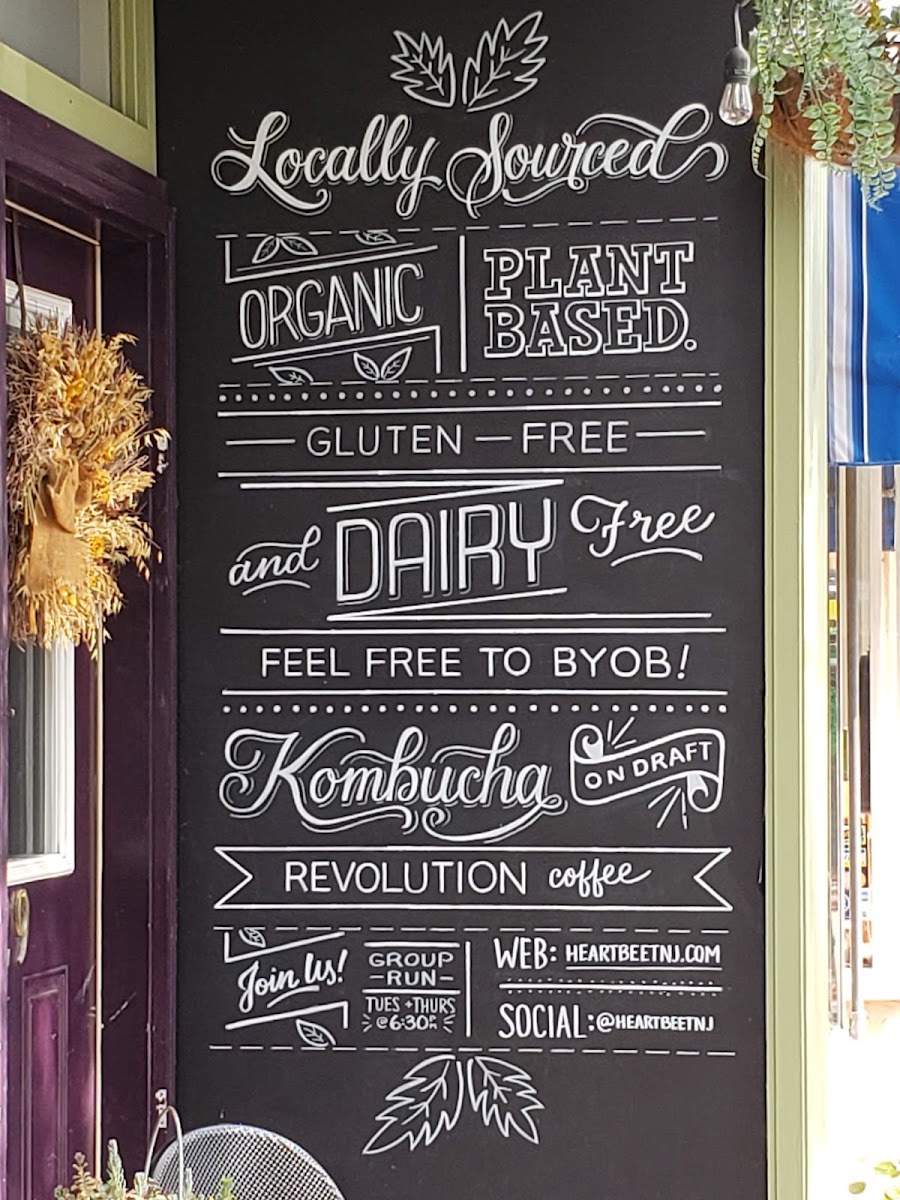 Locally Sourced
ORGANIC
PLANT
BASED.
GLUTEN — FREE
and DAIRY Free
FEEL FREE TO BYOB!
Kombucha ON DRAFT
REVOLUTION coffee
Join Us!
GROUP
-RUN-
TUES + THURS
@ 6:30PM
WEB: HEARTBEETNJ.COM
SOCIAL: @HEARTBEETNJ